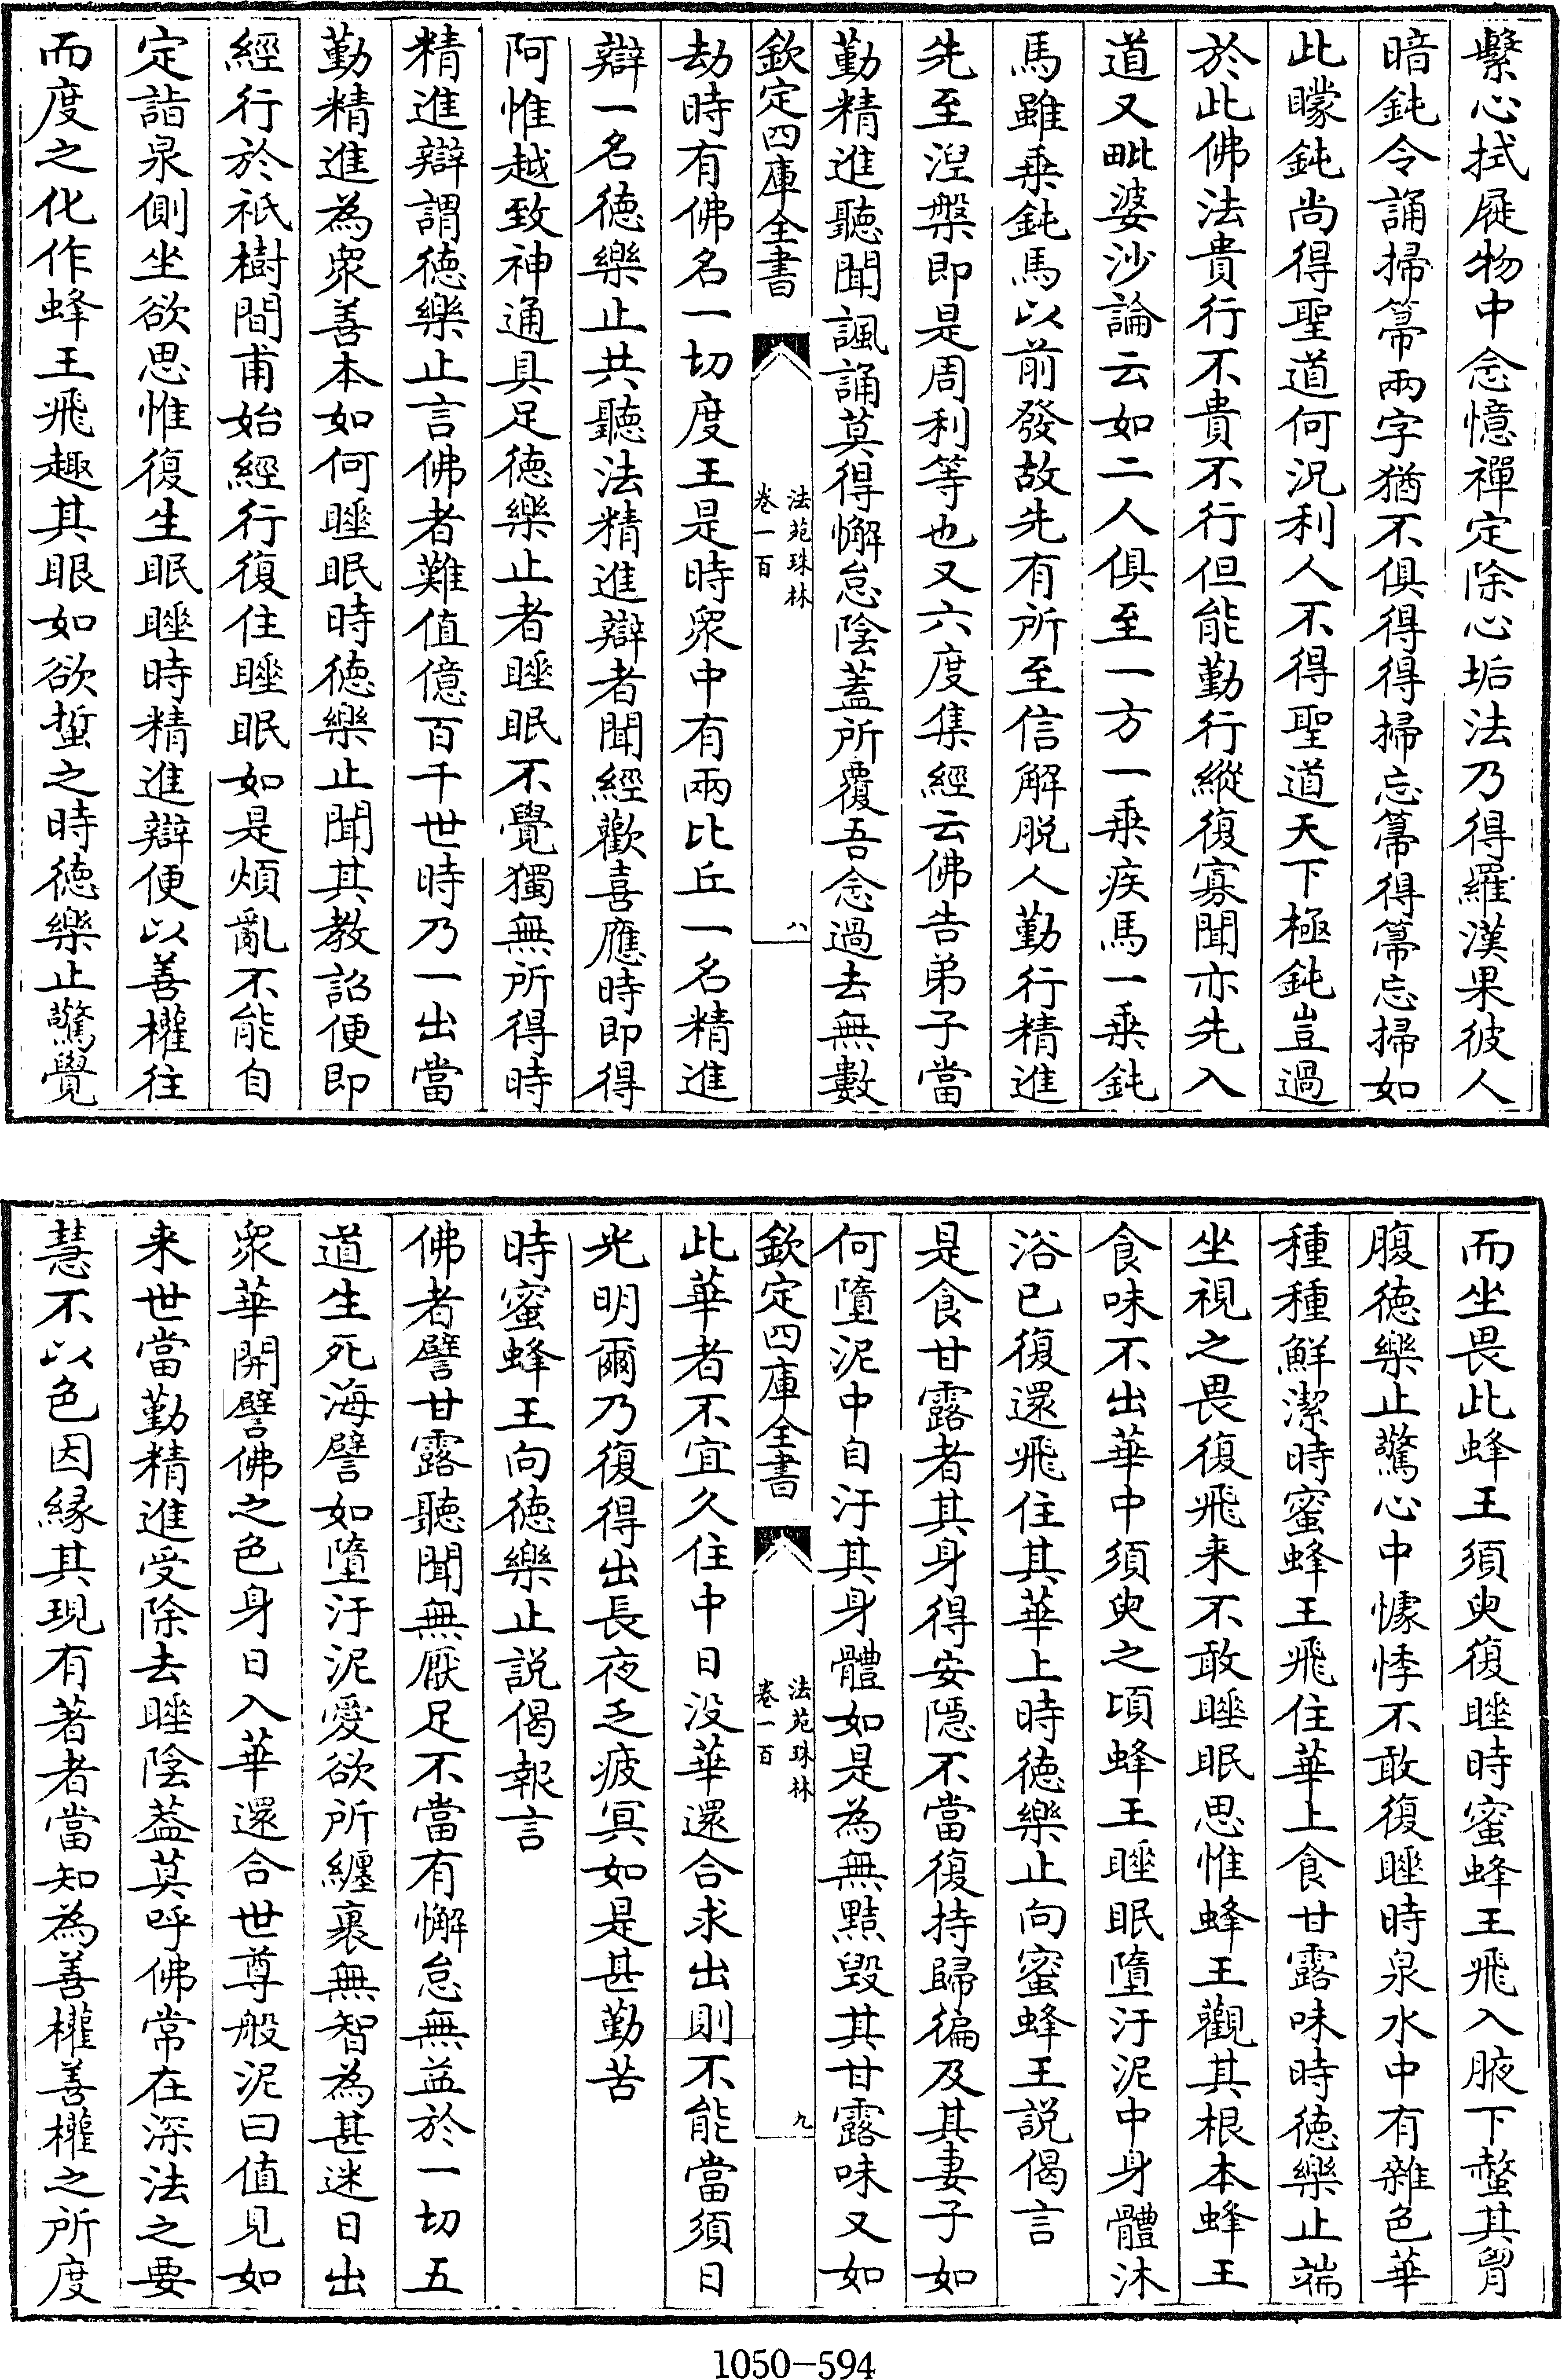 繫心拭屣物中念憶禪定除心垢法乃得羅漢果彼人
暗鈍令誦掃箒兩字猶不俱得得掃忘箒得箒忘掃如
此矇鈍尚得聖道何況利人不得聖道天下極鈍豈過
於此佛法貴行不貴不行但能勤行縱復寡聞亦先入
道又毗婆沙論云如二人俱至一方一乗疾馬一乗鈍
馬雖乗鈍馬以前發故先有所至信解脱人勤行精進
先至涅槃即是周利等也又六度集經云佛告弟子當
勤精進聽聞諷誦莫得懈怠陰蓋所覆吾念過去無數
欽定四庫全書
法苑珠林
卷一百
八
劫時有佛名一切度王是時衆中有兩比丘一名精進
辯一名德樂止共聽法精進辯者聞經歡喜應時即得
阿惟越致神通具足德樂止者睡眠不覺獨無所得時
精進辯謂德樂止言佛者難值億百千世時乃一出當
勤精進為衆善本如何睡眠時德樂止聞其教詔便即
經行於祇樹間甫始經行復住睡眠如是煩亂不能自
定詣泉側坐欲思惟復生眠睡時精進辯便以善權往
而度之化作蜂王飛趣其眼如欲蜇之時德樂止驚覺
而坐畏此蜂王須臾復睡時蜜蜂王飛入腋下螫其胷
腹德樂止驚心中懅悸不敢復睡時泉水中有雜色華
種種鮮潔時蜜蜂王飛住華上食甘露味時德樂止端
坐視之畏復飛来不敢睡眠思惟蜂王觀其根本蜂王
食味不出華中須臾之頃蜂王睡眠墮汙泥中身體沐
浴已復還飛住其華上時德樂止向蜜蜂王說偈言
是食甘露者其身得安隱不當復持歸徧及其妻子如
何墮泥中自汙其身體如是為無黠毀其甘露味又如
欽定四庫全書
法苑珠林
卷一百
九
此華者不宜久住中日没華還合求出則不能當須日
光明爾乃復得出長夜乏疲冥如是甚勤苦
時蜜蜂王向德樂止説偈報言
佛者譬甘露聽聞無厭足不當有懈怠無益於一切五
道生死海譬如墮汙泥愛欲所纏裹無智為甚迷日出
衆華開譬佛之色身日入華還合世尊般泥曰值見如
来世當勤精進受除去睡陰葢莫呼佛常在深法之要
慧不以色因縁其現有著者當知為善權善權之所度
1050-594